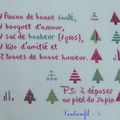 1 flacon de bonne santé,
1 bouquet d'amour,
1 sac de bonheur (gros),
1 kilo d'amitié et
2 tonnes de bonne humeur.
P.S: à déposer
au pied du Sapin